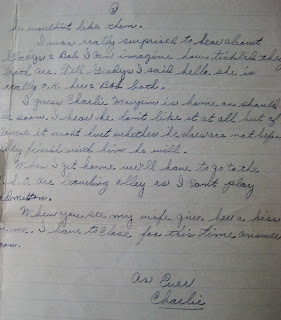 he wouldn't like them.
I was really surprised to hear about
Gladys & Bob I can imagine how tickled they
both are. Tell Gladys I said hello, she is
really o.k. her & Bob both.
I guess Charlie is home or should
be soon. I hear he don't like it at all but of
course it wont hurt whether he does are not before
they finish with him he will.
When I get home we'll have to go to the
S.O. are bowling alley as I can't play
badminton.
When you see my wife give her a kiss
for me. I have to close for this time answer
soon.
As Ever
Charlie